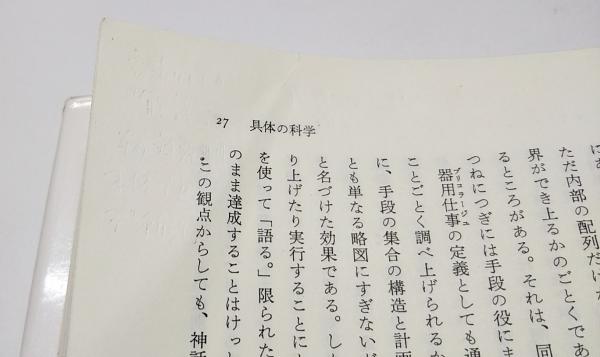 27 具体の科学
ただ内部の配列だけが
界ができ上るかのごとくであ
るところがある。それは、同
つねにつぎには手段の役にま
器用仕事の定義としても通
ブリコラージュ
ことごとく調べ上げられるか
に、手段の集合の構造と計画
とも単なる略図にすぎないが
と名づけた効果である。しか
り上げたり実行することにと
を使って「語る。」限られた
のまま達成することはけっし
この観点からしても、神話